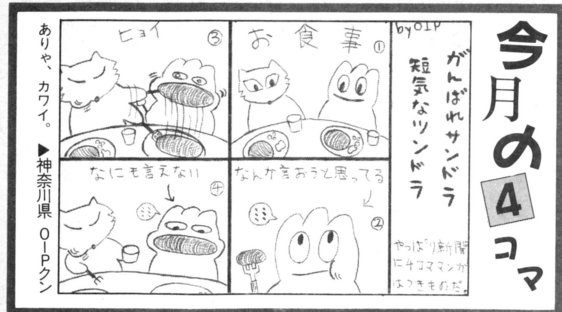 今月の4コマ
byOIP
がんばれサンドラ
短気なツンドラ
やっぱり新聞
に4コママンガ
はつきものだ。
お食事
①
なんか言おうと思ってる
②
ヒョイ
③
なにも言えない
④
ありゃ、カワイイ。
▶神奈川県 OIPクン